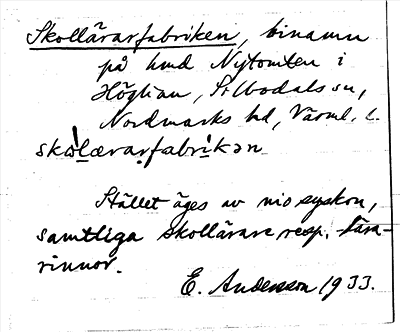 Skollärarfabriken, binamn
på hmd Nytomten i
Höglian, Silbodals sn,
Nordmarks hd, Värml. l.
skolærarfabrikən
Stället äges av nio syskon,
samtliga skollärare resp. lära-
rinnor.
E. Andersson 1933.